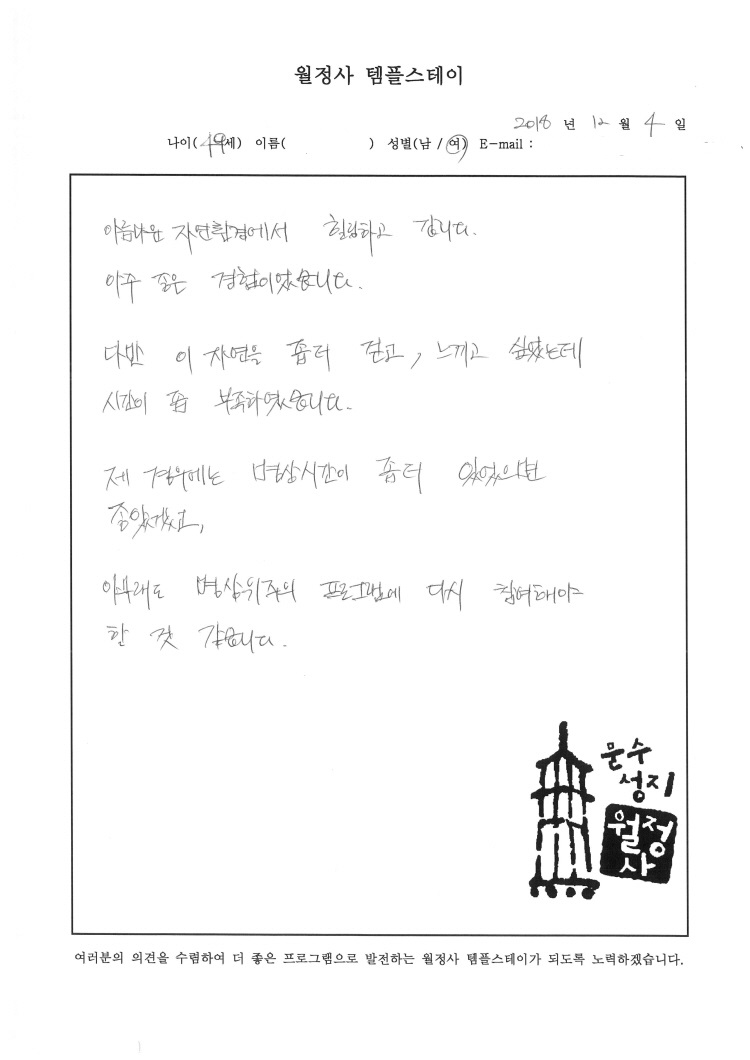 월정사 템플스테이
2018 년 12 월 4 일
나이(49세) 이름( ) 성별(남 / 여) E-mail :
아름다운 자연환경에서 힐링하고 갑니다.
아주 좋은 경험이었습니다.
다만 이 자연을 좀더 걷고, 느끼고 싶었는데
시간이 좀 부족하였습니다.
제 경우에는 명상시간이 좀더 있었으면
좋았겠고,
아무래도 명상위주의 프로그램에 다시 참여해야
할 것 같습니다.
문수
성지
월정
사
여러분의 의견을 수렴하여 더 좋은 프로그램으로 발전하는 월정사 템플스테이가 되도록 노력하겠습니다.